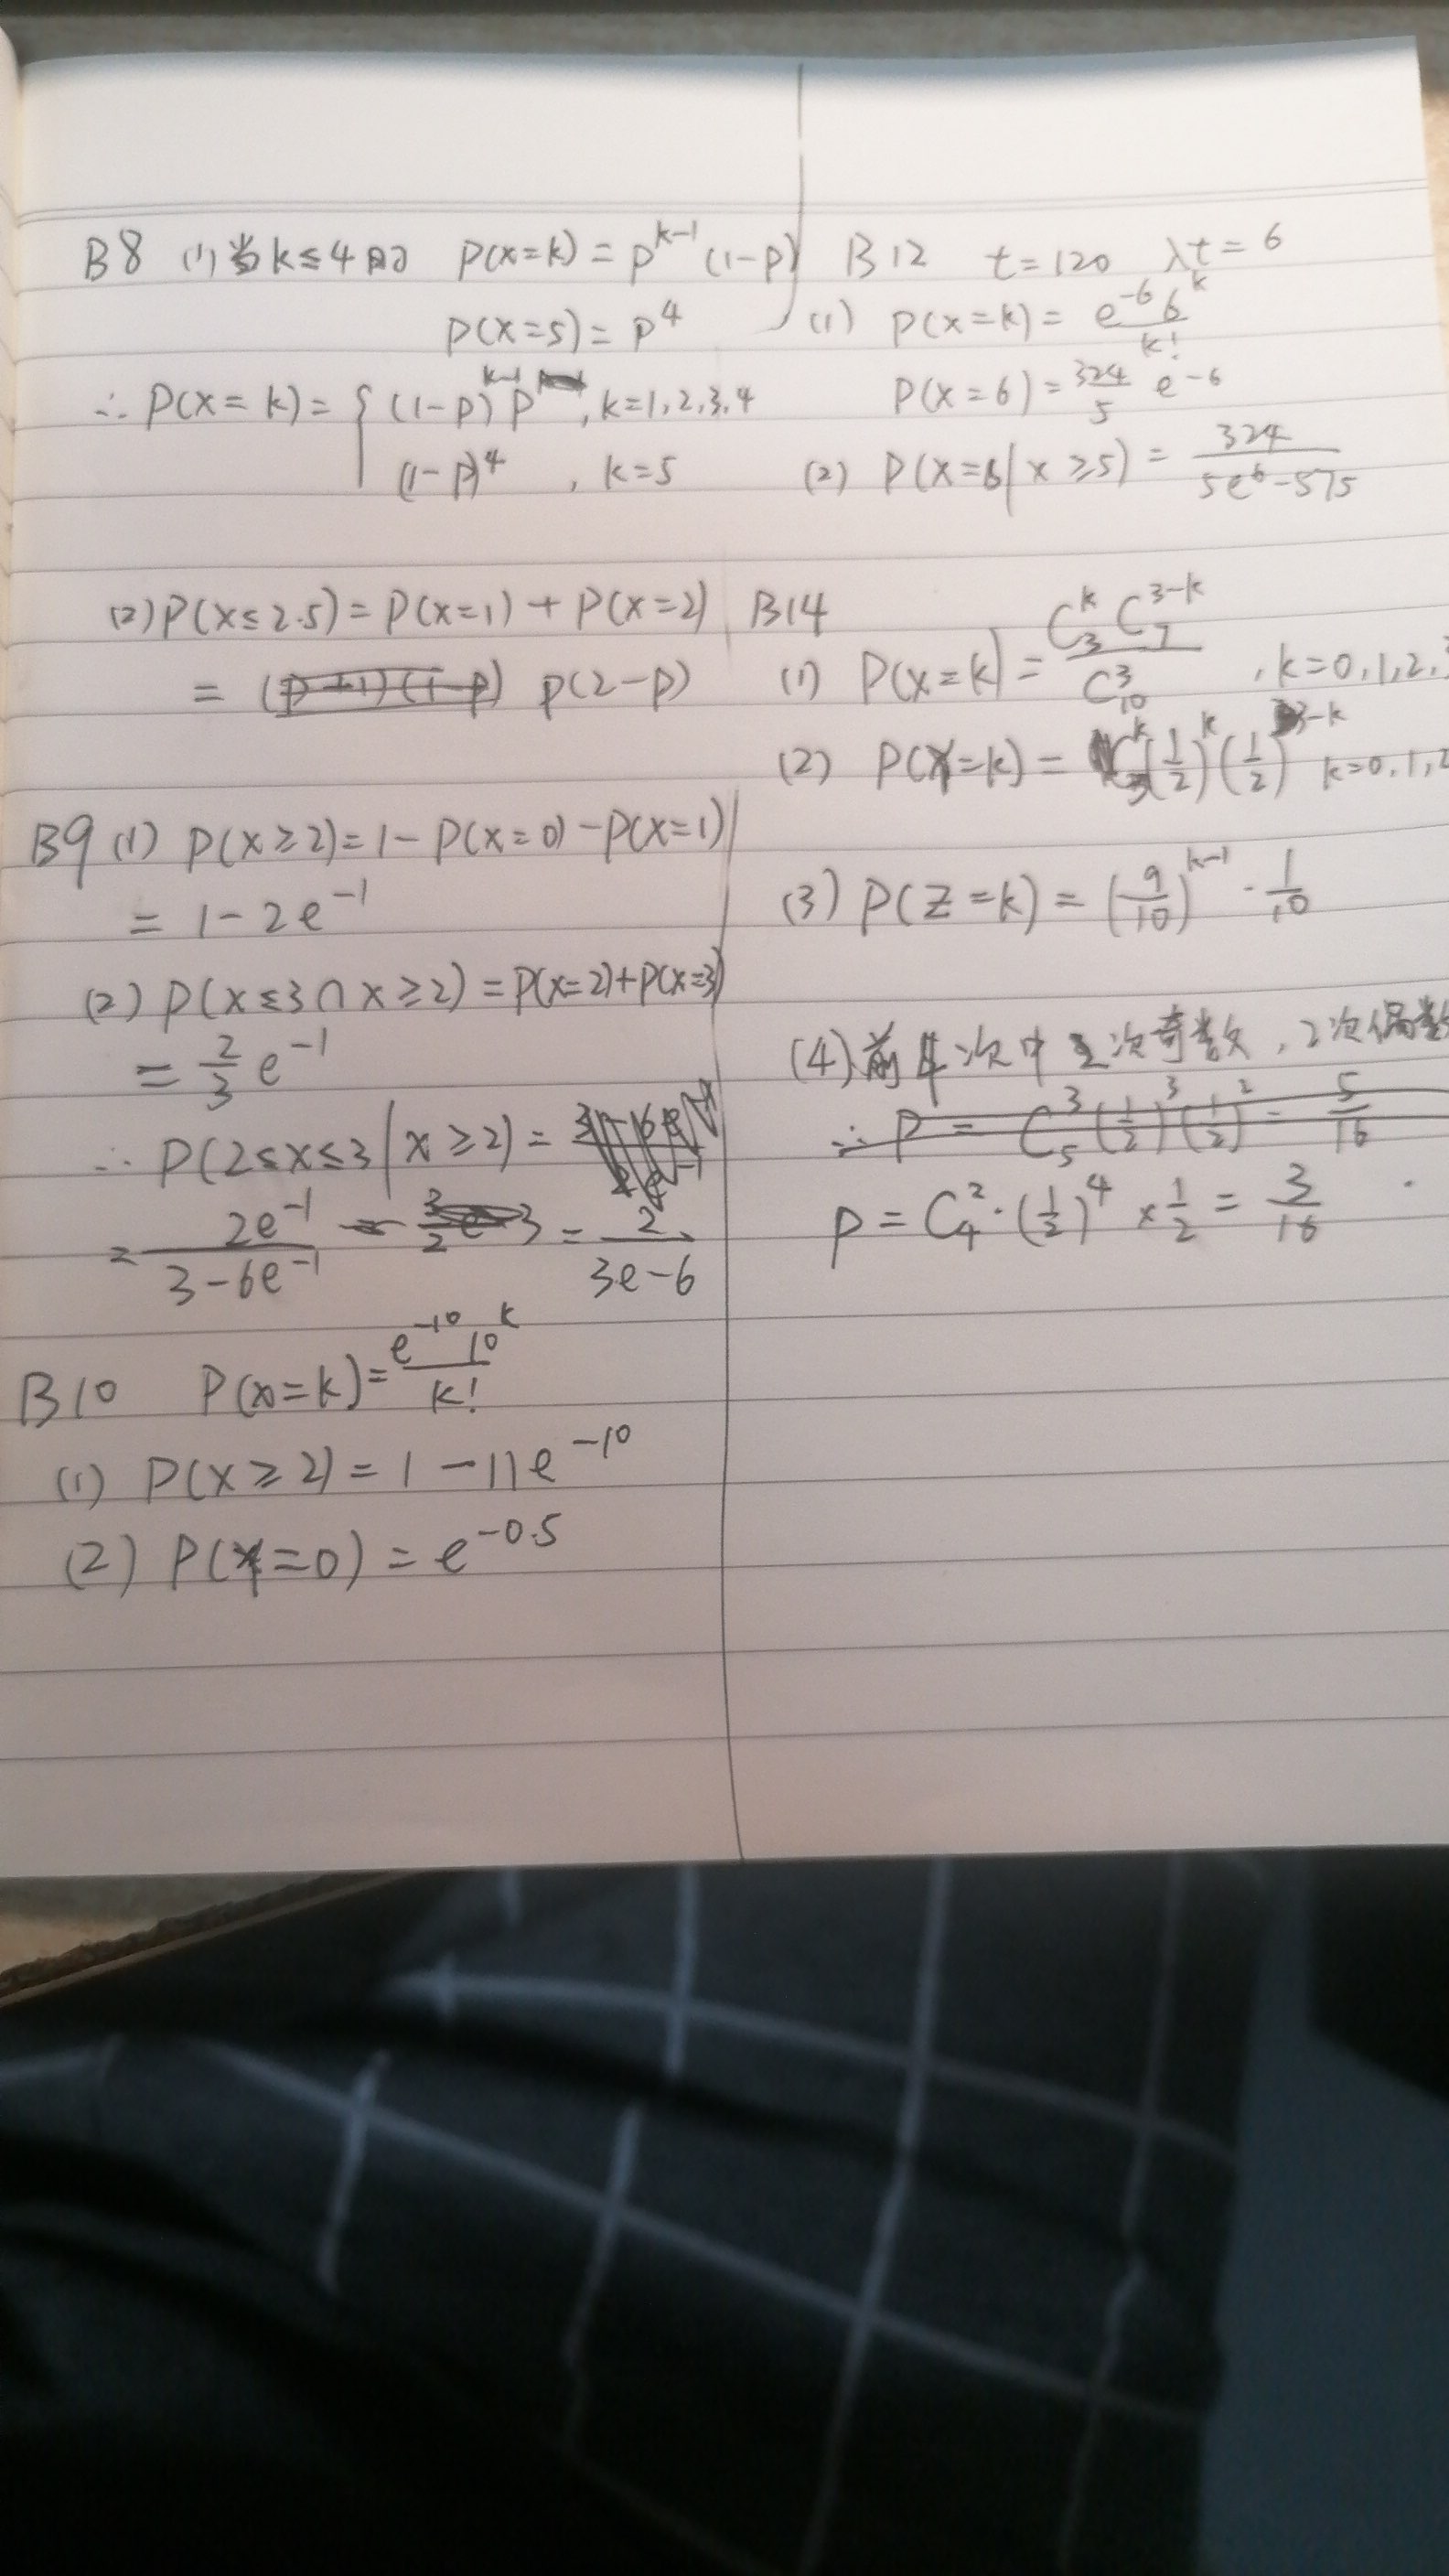 B8 (1) 当k≤4时 P(x=k)=p^{k-1}(1-p)
P(x=5)=p^4
∴ P(x=k)={(1-p)^{k-1}p, k=1,2,3,4
(1-p)^4, k=5
(2) P(x≤2.5)=P(x=1)+P(x=2)
= p(2-p)
B9 (1) P(x≥2)=1-P(x=0)-P(x=1)
=1-2e^{-1}
(2) P(x≤3∩x≥2)=P(x=2)+P(x=3)
=\frac{2}{3}e^{-1}
∴ P(2≤x≤3|x≥2)=
=\frac{2e^{-1}}{3-6e^{-1}}=\frac{2}{3e-6}
B10 P(x=k)=\frac{e^{-10}10^k}{k!}
(1) P(x≥2)=1-11e^{-10}
(2) P(Y=0)=e^{-0.5}
B12 t=120 λt=6
(1) P(x=k)=\frac{e^{-6}6^k}{k!}
P(x=6)=\frac{324}{5}e^{-6}
(2) P(x=6|x≥5)=\frac{324}{5e^6-575}
B14
(1) P(x=k)=\frac{C_3^k C_7^{3-k}}{C_{10}^3}, k=0,1,2,
(2) P(Y=k)=C_3^k(\frac{1}{2})^k(\frac{1}{2})^{3-k} k=0,1,2
(3) P(Z=k)=(\frac{9}{10})^{k-1}·\frac{1}{10}
(4) 前4次中2次奇数,2次偶数
∴ P=C_5^3(\frac{1}{2})^3(\frac{1}{2})^2=\frac{5}{16}
P=C_4^2·(\frac{1}{2})^4×\frac{1}{2}=\frac{3}{16}